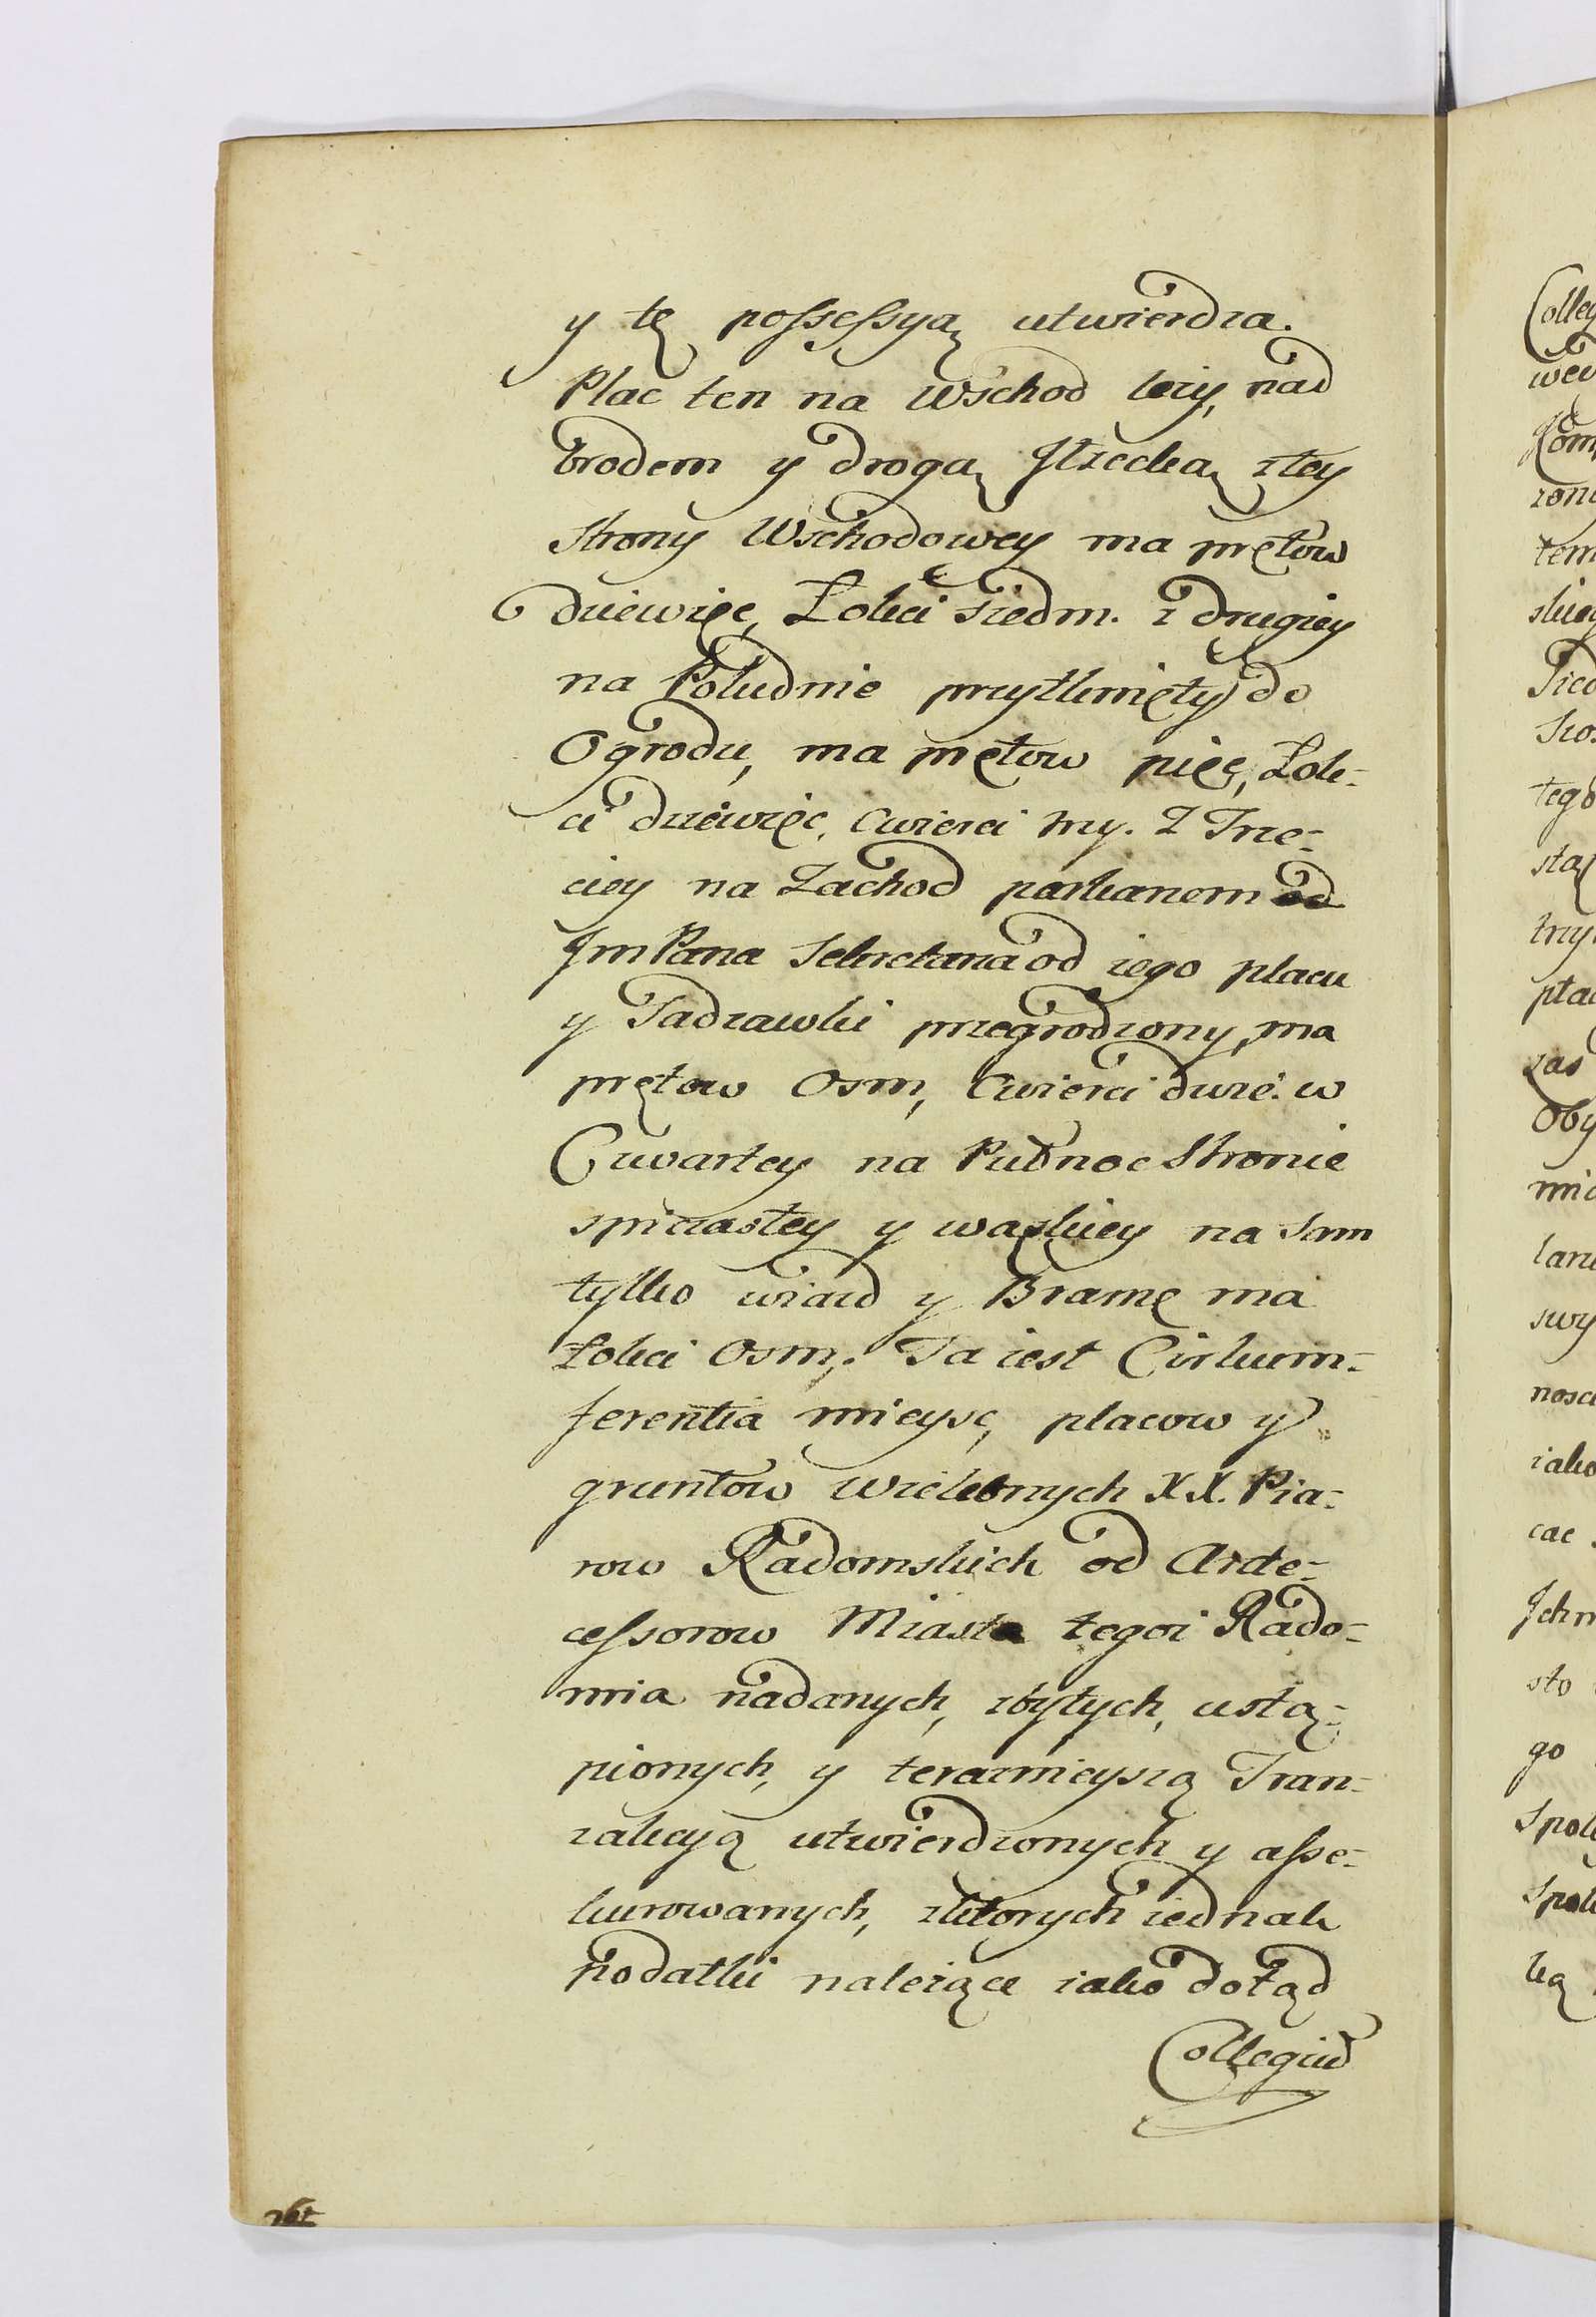 y tę possessyą utwierdza.
Plac ten na Wschod lezy, nad
brodem y drogą Jłzecką ztey
strony Wschodowey ma prętow
dziewięc, Łokci siedm. z drugiey
na Poludnie przytknięty do
Ogrodu, ma prętow pięc, Łok-
ci dziewięc, cwierci trzy. Z Trze-
ciey na Zachod parkanem od
Jm Pana Sekretarza od iego placu
y Sadzawki przegrodzony, ma
prętow Osm, Cwierci dwie. w
Czwartey na Pułnoc Stronie
spiczastey y wązkiey na sam
tylko wiazd y Bramę ma
Łokci Osm. Ta iest Cirkum-
ferentia mieysc, placow y
gruntow Wielebnych XX. Pia-
row Radomskich od Ante-
cessorow Miasta tegoz Rado-
mia nadanych, zbytych, ustą-
pionych, y teraznieyszą Tran-
zakcyą utwierdzonych y asse-
kurowanych, zktorych iednak
podatki nalezące iako dotąd
Collegiū
Colley
tem
tego
zas
Oby
swy
iako
cac
sto
go
Spol
Spol
ką